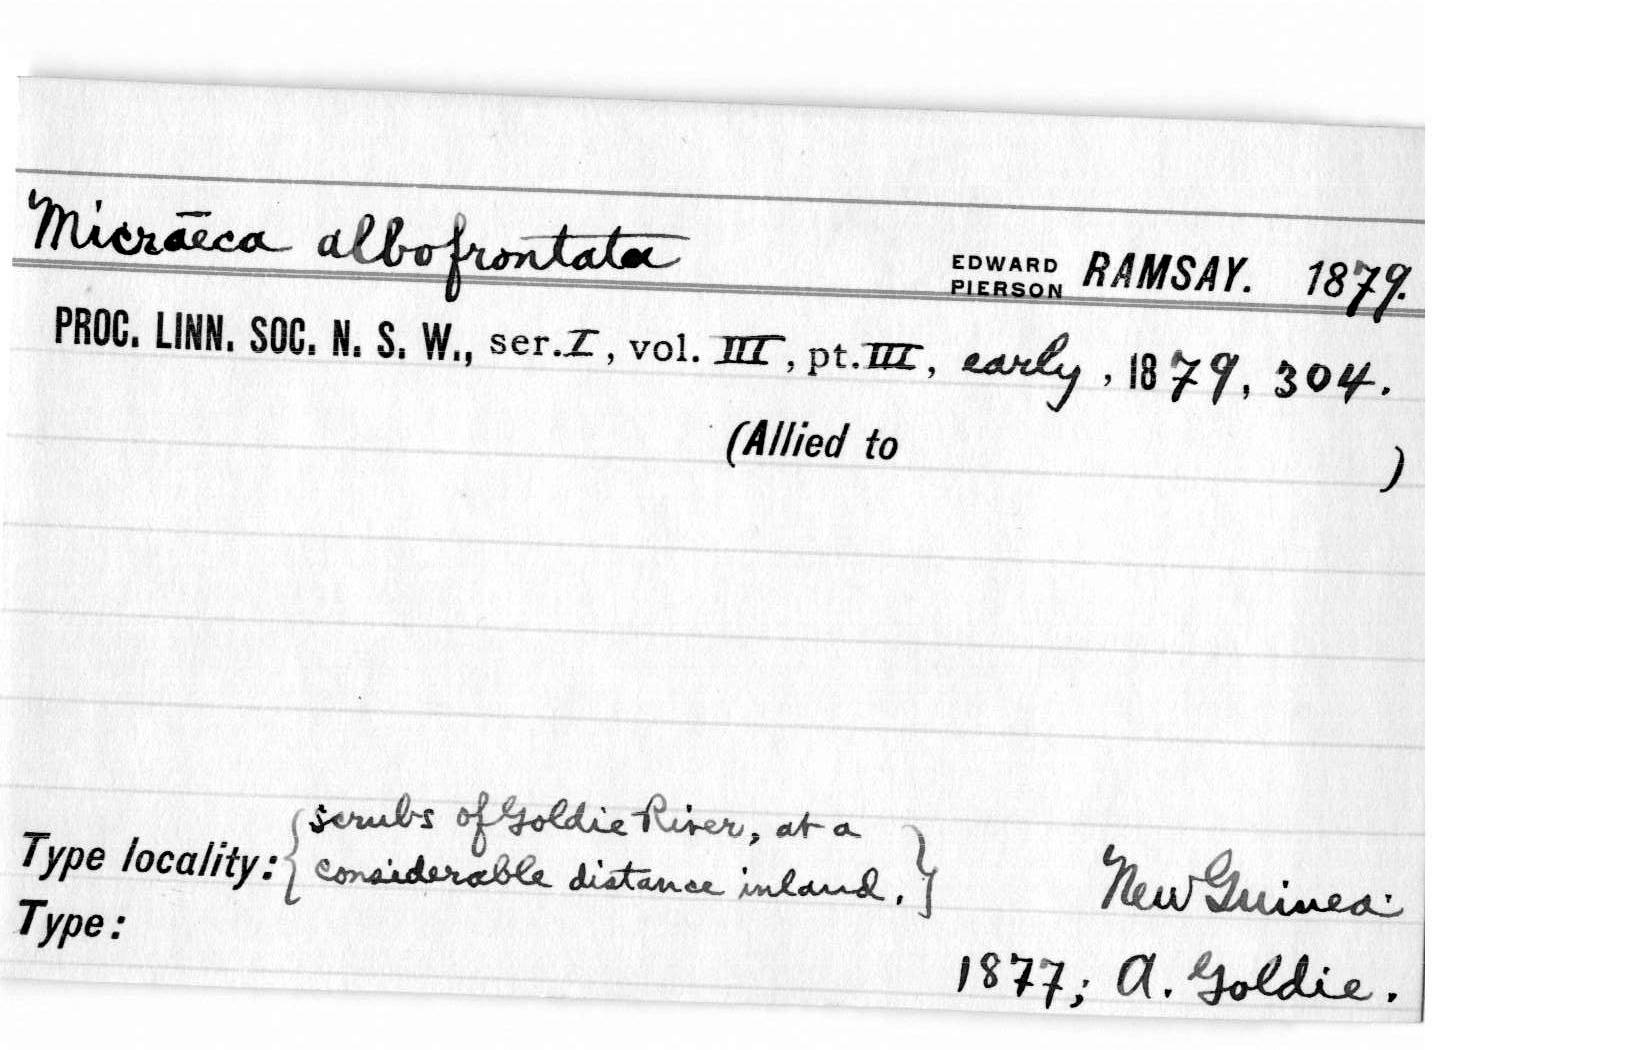 Micrœca albofrontata EDWARD PIERSON RAMSAY. 1879.
PROC. LINN. SOC. N. S. W., ser. I, vol. III, pt. III, early, 1879, 304.
(Allied to )
scrubs of Goldie River, at a
Type locality: { considerable distance inland. } New Guinea.
Type:
1877; A. Goldie.